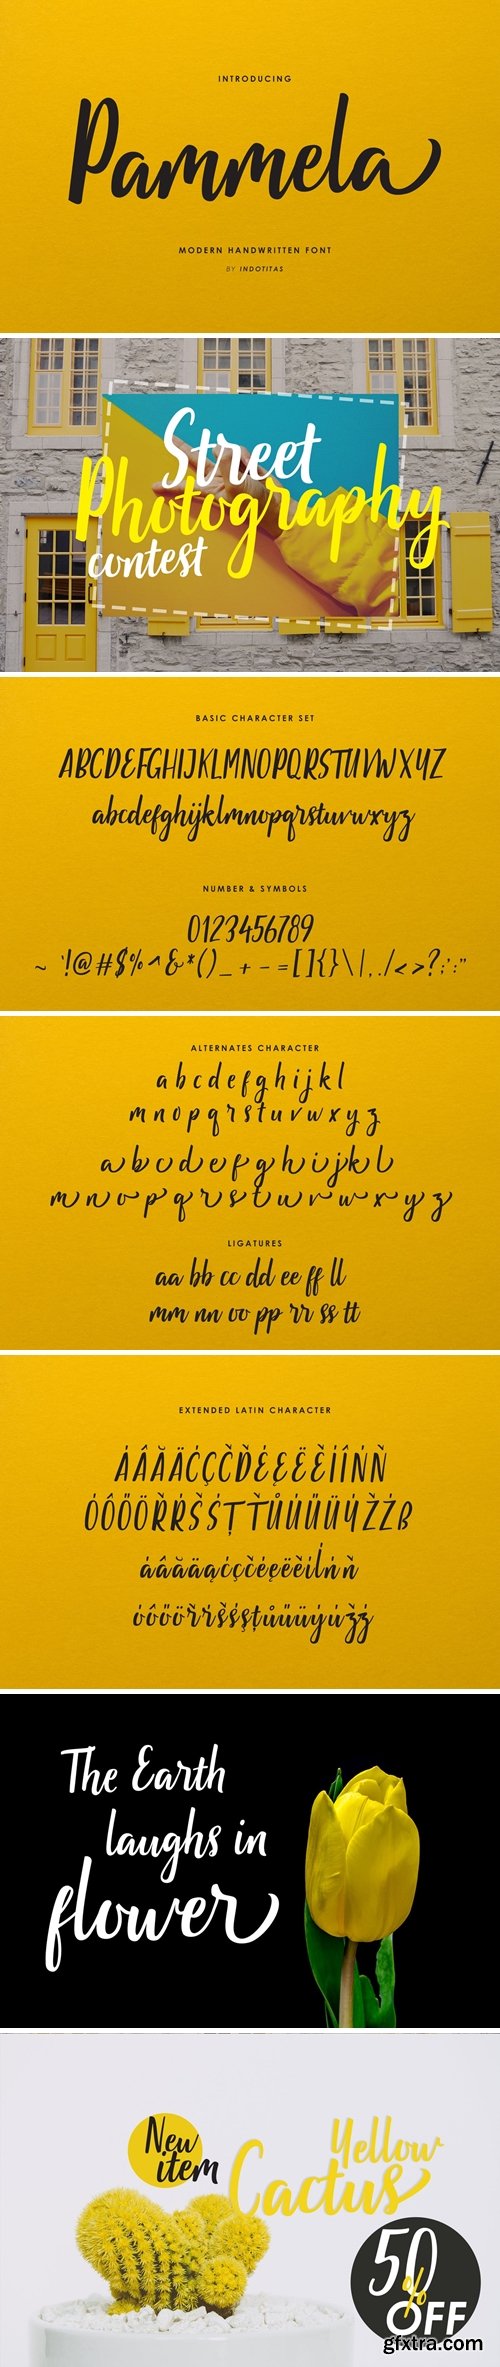 INTRODUCING
Pammela
MODERN HANDWRITTEN FONT
BY INDOTITAS
Street
Photography
contest
BASIC CHARACTER SET
ABCDEFGHIJKLMNOPQRSTUVWXYZ
abcdefghijklmnopqrstuvwxyz
NUMBER & SYMBOLS
0123456789
~ `!@#$%^&*()_+-=[]{}\|,./<>?;:'"
ALTERNATES CHARACTER
a b c d e f g h i j k l
m n o p q r s t u v w x y z
a b c d e f g h i j k l
m n o p q r s t u v w x y z
LIGATURES
aa bb cc dd ee ff ll
mm nn oo pp rr ss tt
EXTENDED LATIN CHARACTER
The Earth
laughs in
flower
New
item
Yellow
Cactus
50
%
OFF
gfxtra.com